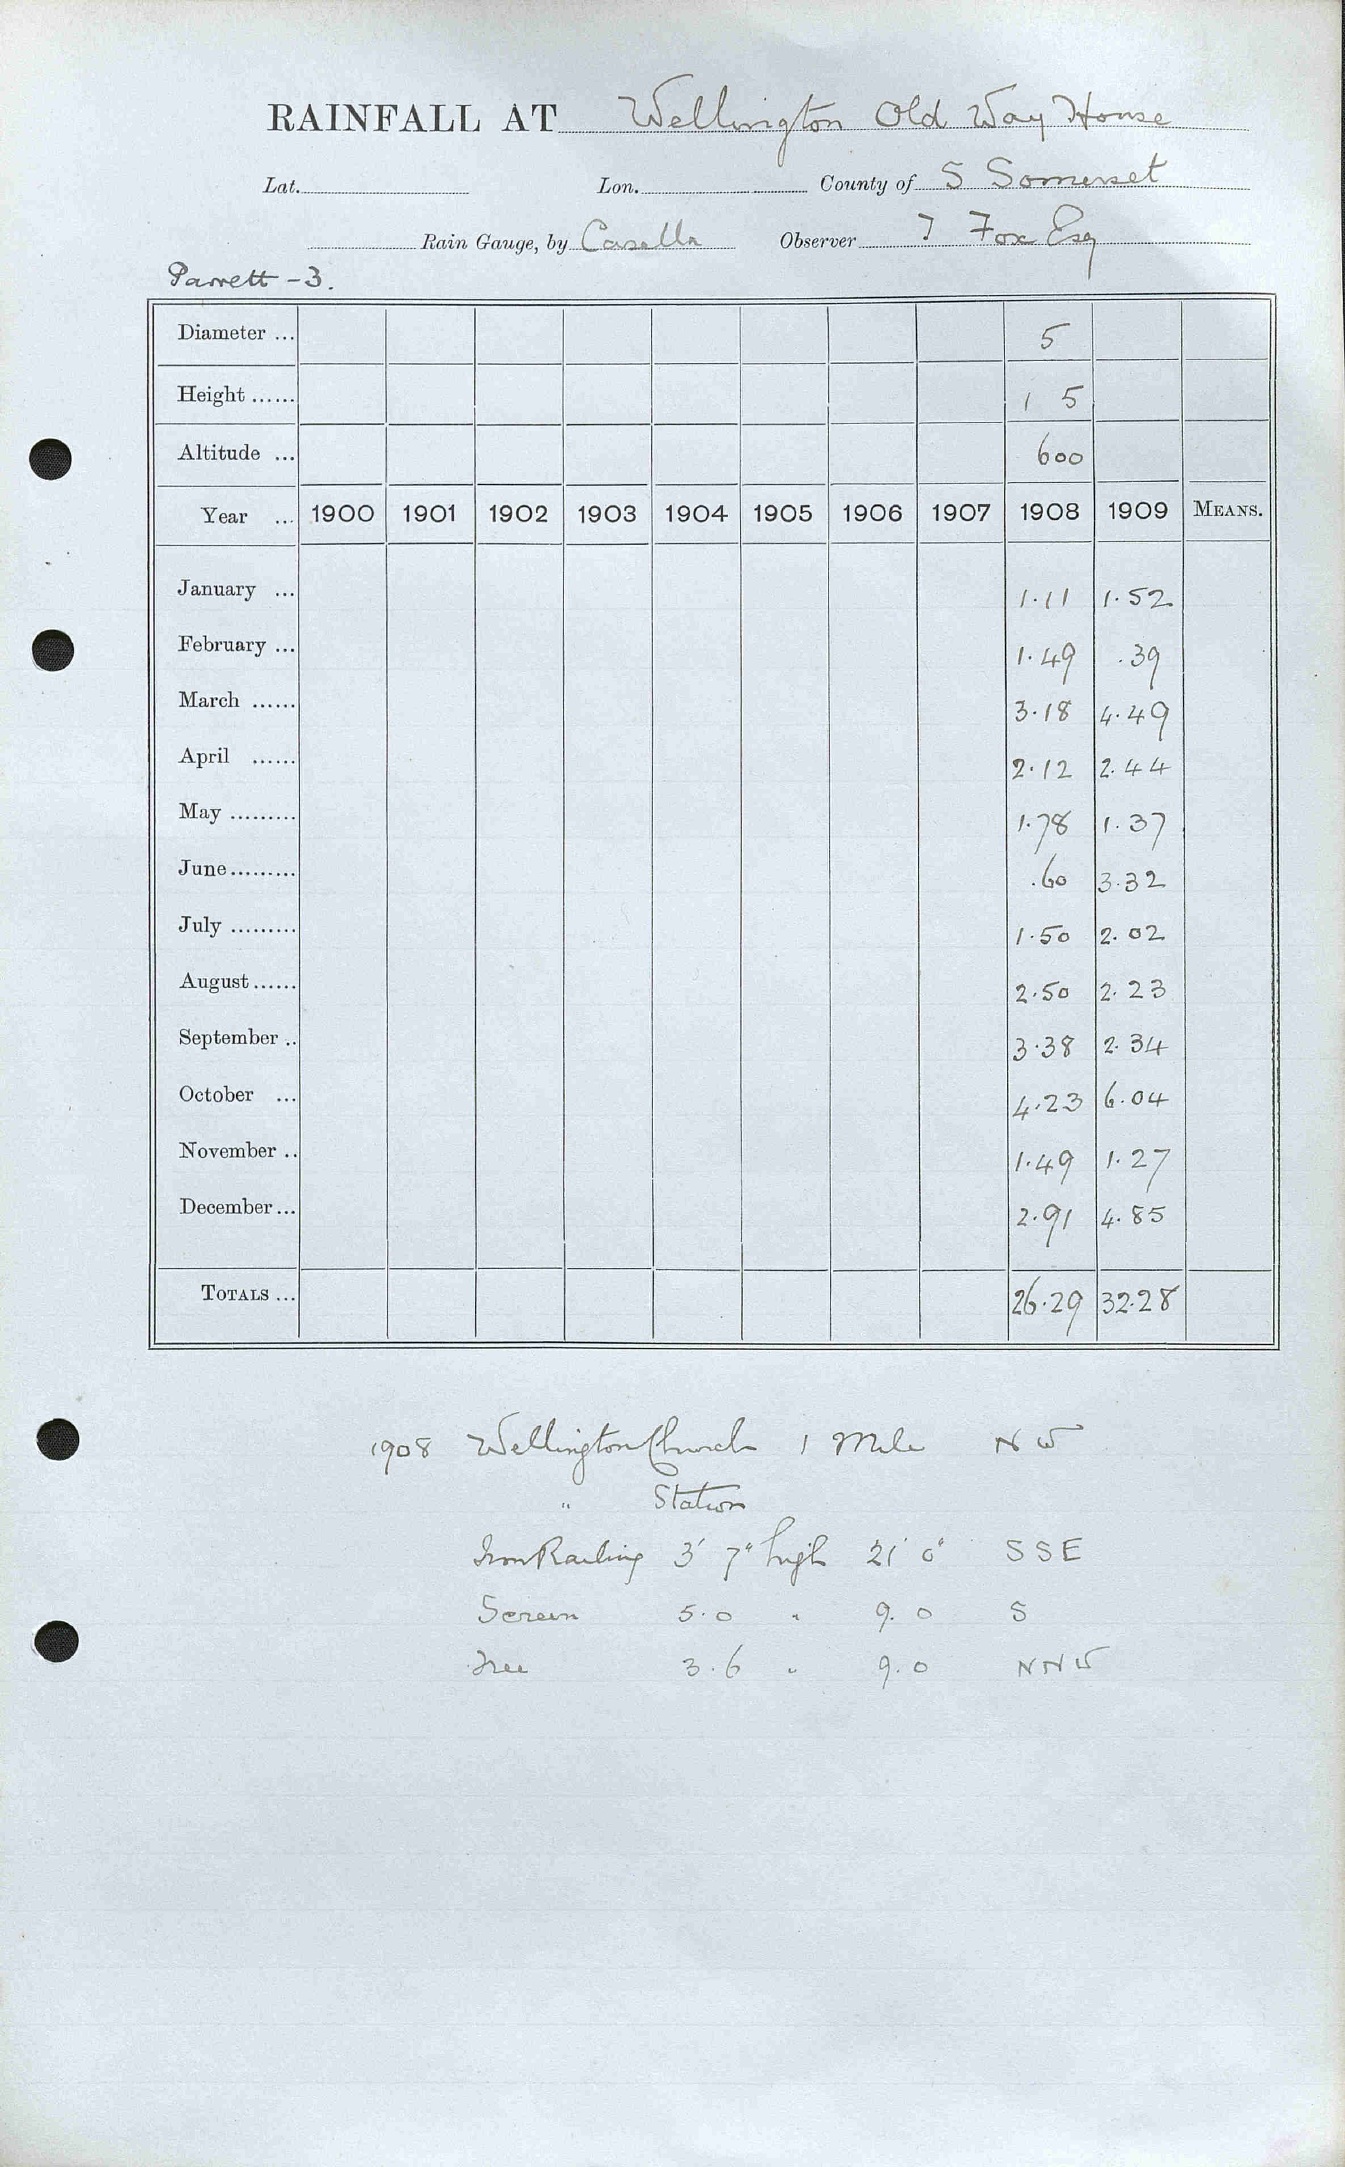 RAINFALL AT Wellington Old Way House
Lat. Lon. County of S Somerset
Rain Gauge, by Casella Observer T Fox Esq
Parrett - 3.
Diameter ... 5
Height ...... 1 5
Altitude ... 600
Year ... 1900 1901 1902 1903 1904 1905 1906 1907 1908 1909 MEANS.
January ... 1.11 1.52
February ... 1.49 .39
March ...... 3.18 4.49
April ...... 2.12 2.44
May ......... 1.78 1.37
June ......... .60 3.32
July ......... 1.50 2.02
August ...... 2.50 2.23
September .. 3.38 2.34
October ... 4.23 6.04
November .. 1.49 1.27
December ... 2.91 4.85
TOTALS ... 26.29 32.28
1908 Wellington Church 1 Mile NW
" Station
Iron Railing 3' 7" high 21' 0" SSE
Screen 5.0 " 9.0 S
Tree 3.6 " 9.0 NNW